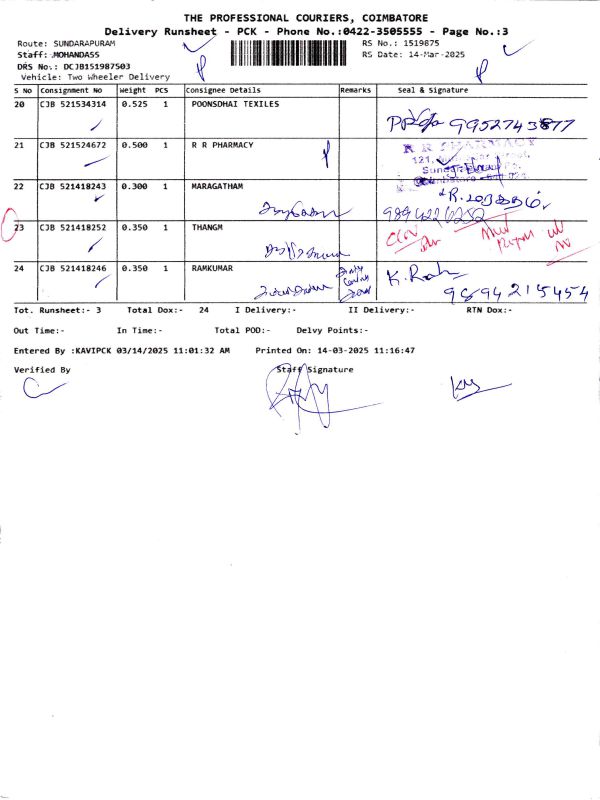 THE PROFESSIONAL COURIERS, COIMBATORE
Delivery Runsheet - PCK - Phone No.:0422-3505555 - Page No.:3
Route: SUNDARAPURAM
RS No.: 1519875
Staff: MOHANDASS
RS Date: 14-Mar-2025
DRS No.: DCJB151987503
Vehicle: Two Wheeler Delivery
S No Consignment No Weight PCS Consignee Details Remarks Seal & Signature
20 CJB 521534314 0.525 1 POONSDHAI TEXILES
9952743877
21 CJB 521524672 0.500 1 R R PHARMACY
R R PHARMACY
121,
22 CJB 521418243 0.300 1 MARAGATHAM
R. மரகதம்
9894226252
23 CJB 521418252 0.350 1 THANGM
24 CJB 521418246 0.350 1 RAMKUMAR
K. Rah
9894215454
Tot. Runsheet:- 3 Total Dox:- 24 I Delivery:- II Delivery:- RTN Dox:-
Out Time:- In Time:- Total POD:- Delvy Points:-
Entered By :KAVIPCK 03/14/2025 11:01:32 AM Printed On: 14-03-2025 11:16:47
Verified By Staff Signature